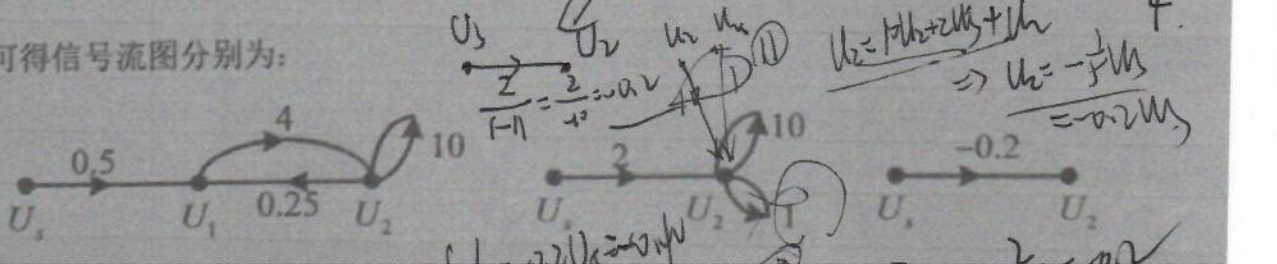 可得信号流图分别为:
U₃ U₂ U₂
2/(1-11) = 2/-10 = -0.2
11
U₂=10U₂+2U₃+U₂
=> U₂ = -1/5 U₃
= -0.2U₃
4.
0.5 4 0.25 10
Uₛ U₁ U₂
2 10 1
Uₛ U₂
-0.2
Uₛ U₂